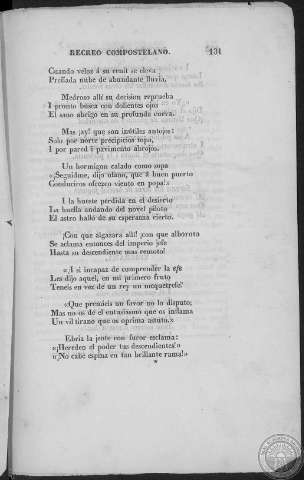 RECREO COMPOSTELANO. 131
Cuando veloz á su cenit se eleva
Preñada nube de abundante lluvia,
Medroso allí su decision reprueba
I pronto busca con dolientes ojos
El sano abrigo en su profunda cueva.
Mas ¡ay! que son inútiles antojos:
Solo por norte precipicios topa,
I por pared i pavimento abrojos.
Un hormigon calado como sopa
«¡Seguidme, dijo ufano, que á buen puerto
Conduciros ofrezco viento en popa!»
I la hueste perdida en el desierto
La huella andando del novel piloto
El astro halló de su esperanza cierto.
¡Con que algazara allí! ¡con que alboroto
Se aclama entonces del imperio jefe
Hasta su descendiente mas remoto!
«A sí incapaz de comprender la efe
Les dijo aquel, en mi primero fruto
Teneis en vez de un rey un mequetrefe.»
«Que premieis un favor no lo disputo;
Mas no os dé el entusiasmo que os inflama
Un vil tirano que os oprima astuto.»
Ebria la jente con furor esclama:
«¡Hereden el poder tus descendientes!»
«¡No cabe espina en tan brillante rama!»